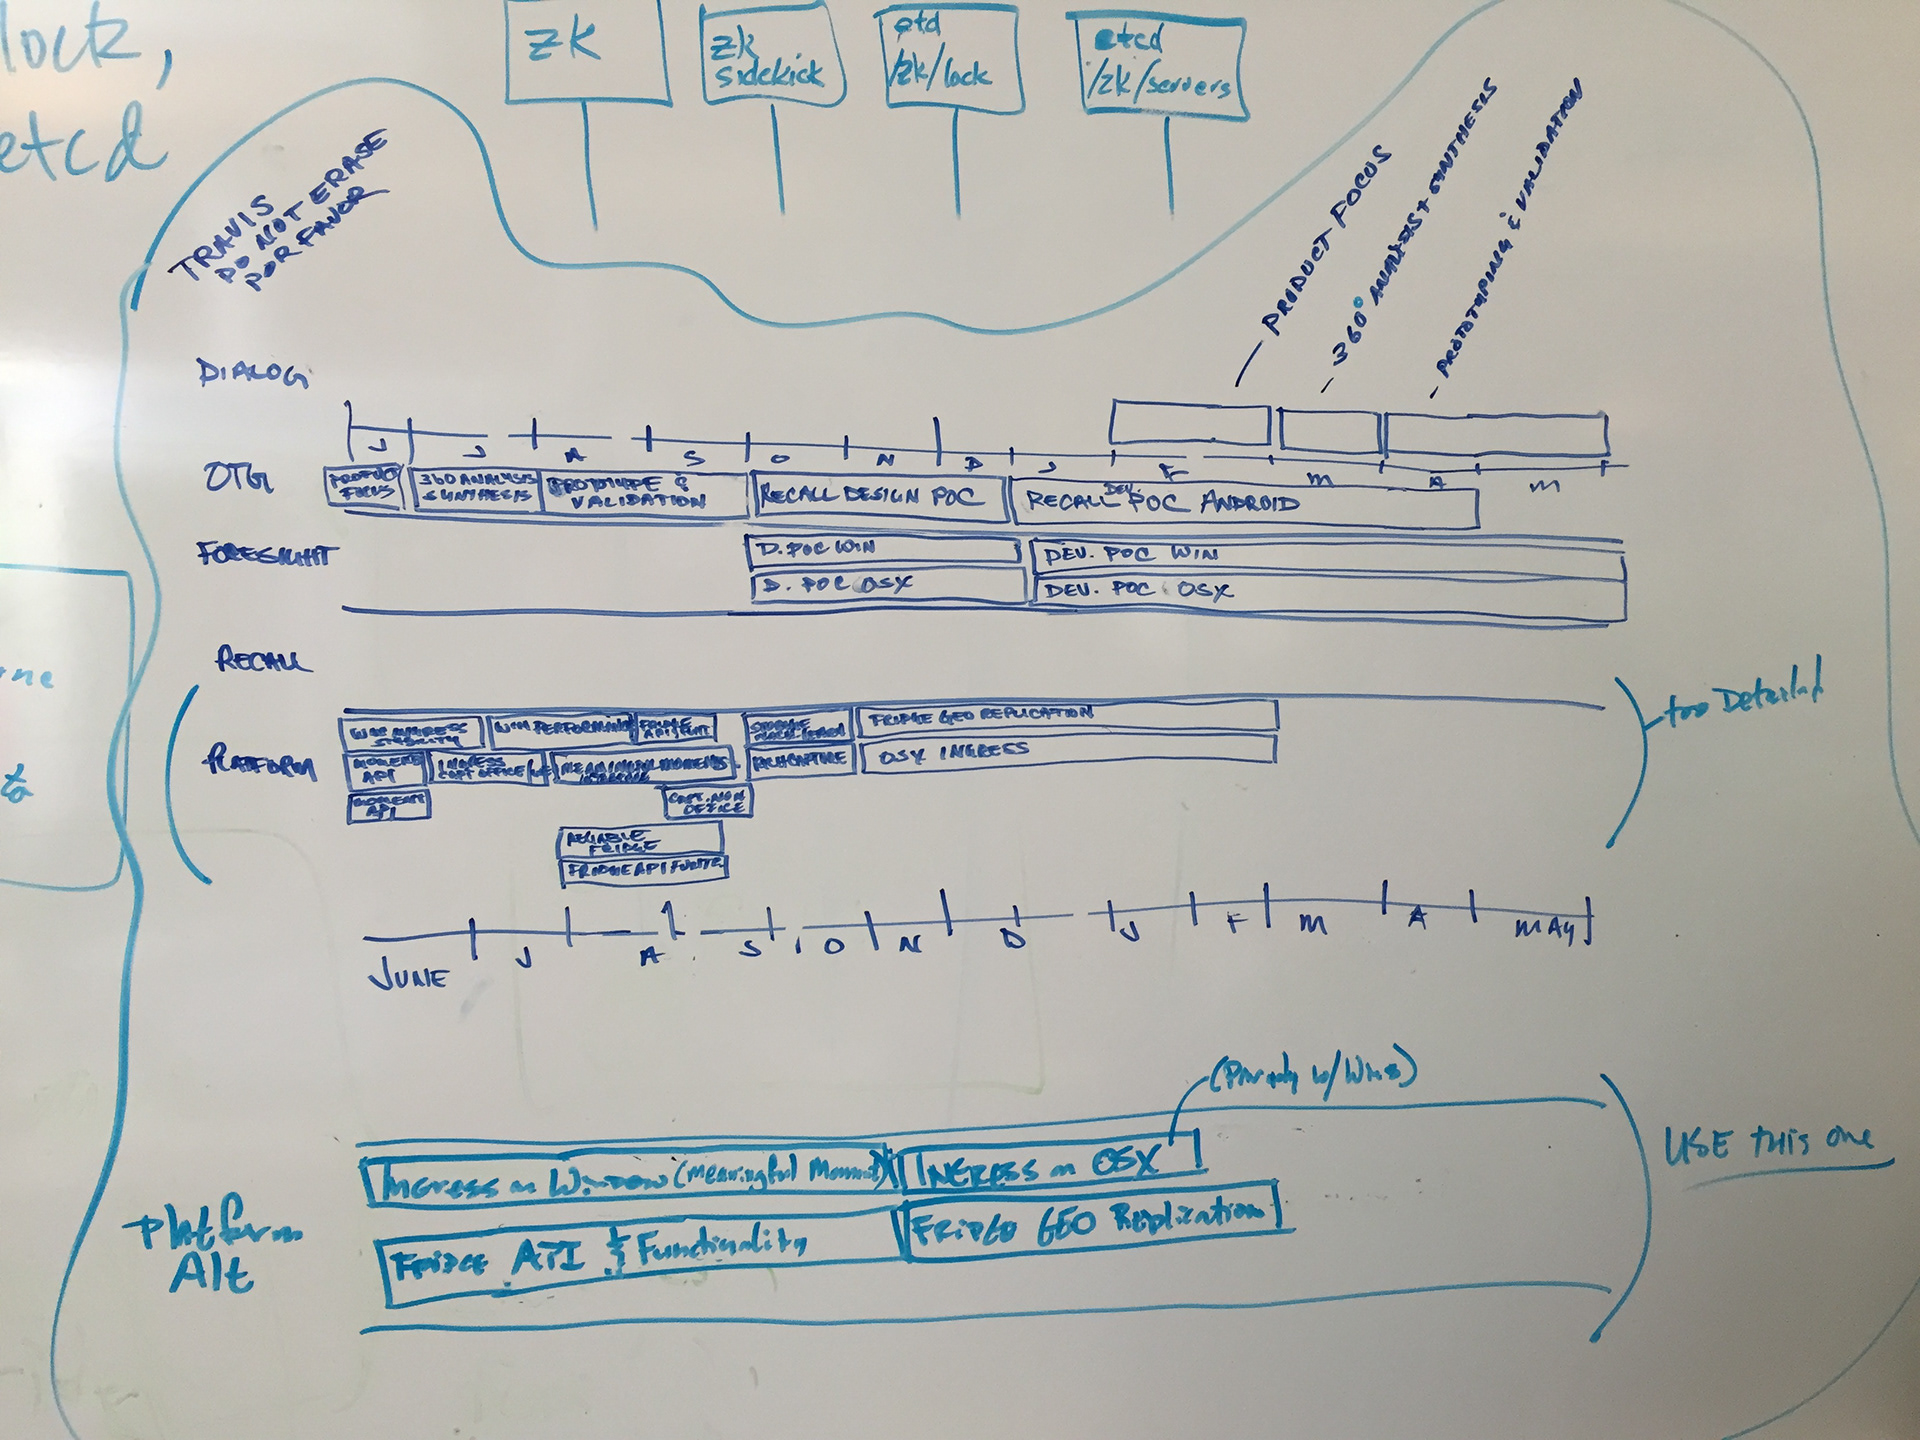 lock,
etcd
ZK
zk
sidekick
etd
/zk/lock
etcd
/zk/servers
TRAVIS
DO NOT ERASE
POR FAVOR
PRODUCT FOCUS
360° ANALYSIS & SYNTHESIS
PROTOTYPING & VALIDATION
DIALOG
J J A S O N D J F M A M
OTG
PRODUCT
FOCUS
360 ANALYSIS
SYNTHESIS
PROTOTYPE &
VALIDATION
RECALL DESIGN POC
RECALL DEV. POC ANDROID
FORESIGHT
D. POC WIN
DEV. POC WIN
D. POC OSX
DEV. POC OSX
RECALL
too Detailed
PLATFORM
WIN INGRESS
STABILITY
WIN PERFORMING
FRIDGE
STORAGE
FRIDGE GEO REPLICATION
MOMENT
API
INGRESS
MEANINGFUL MOMENTS
OSX INGRESS
MOMENT
API
DEVICE
RELIABLE
FRIDGE
FRIDGE API
JUNE J A S O N D J F M A MAY
(Parody w/Wins)
Ingress on Window (Meaningful Moment)
INGRESS on OSX
USE this one
Platform
Alt
Fridge API & Functionality
Fridge GEO Replication